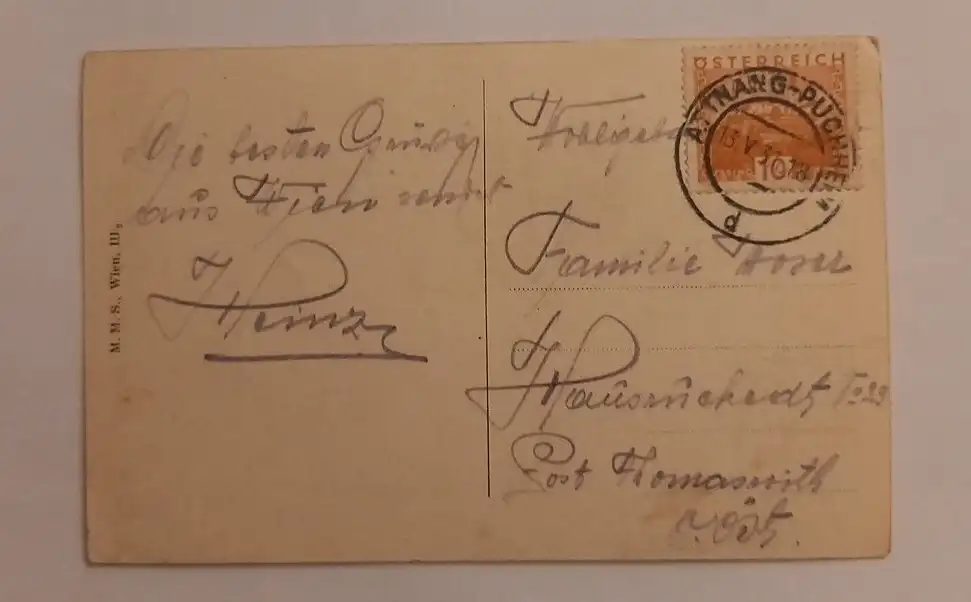 Die besten Grüße
aus Wien sendet
Heinz
M. M. S., Wien, III/2
ÖSTERREICH
10
ATTNANG-PUCHHEIM
13.V.
d
Familie Hoser
Hausruckedt No 29
Post Thomasroith
O. Öst.